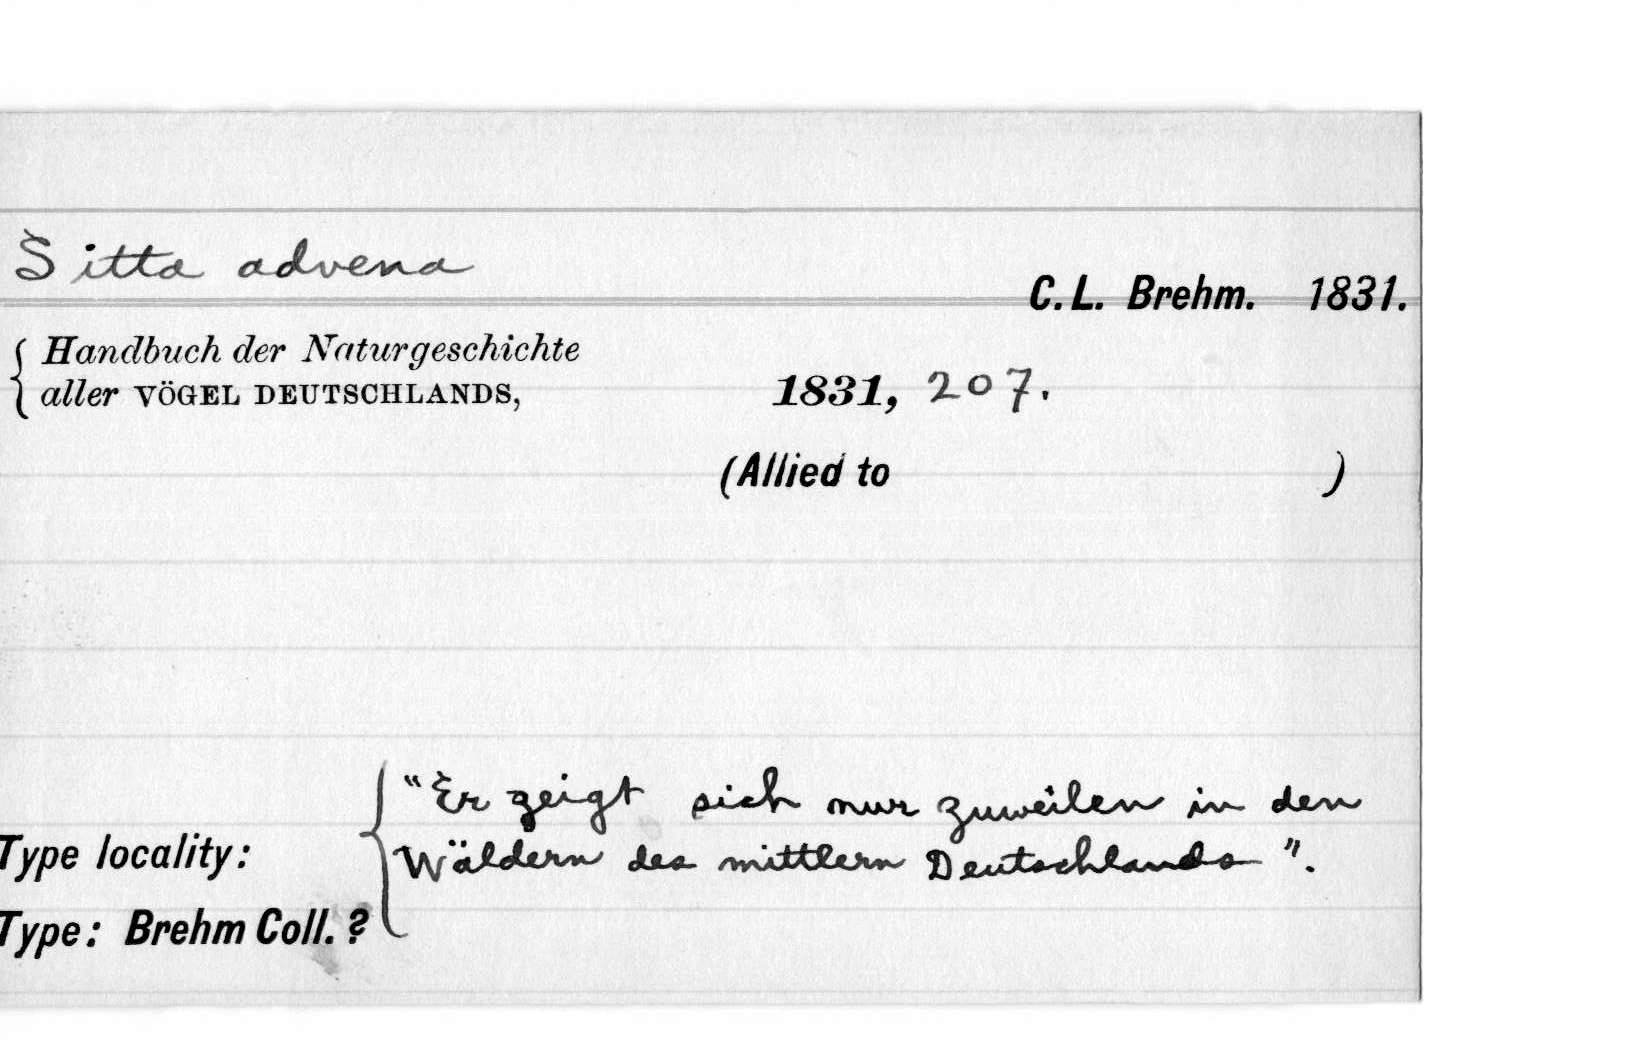 Sitta advena
C. L. Brehm. 1831.
Handbuch der Naturgeschichte
aller VÖGEL DEUTSCHLANDS, 1831, 207.
(Allied to )
"Er zeigt sich nur zuweilen in den
Type locality: Wäldern des mittlern Deutschlands".
Type: Brehm Coll. ?